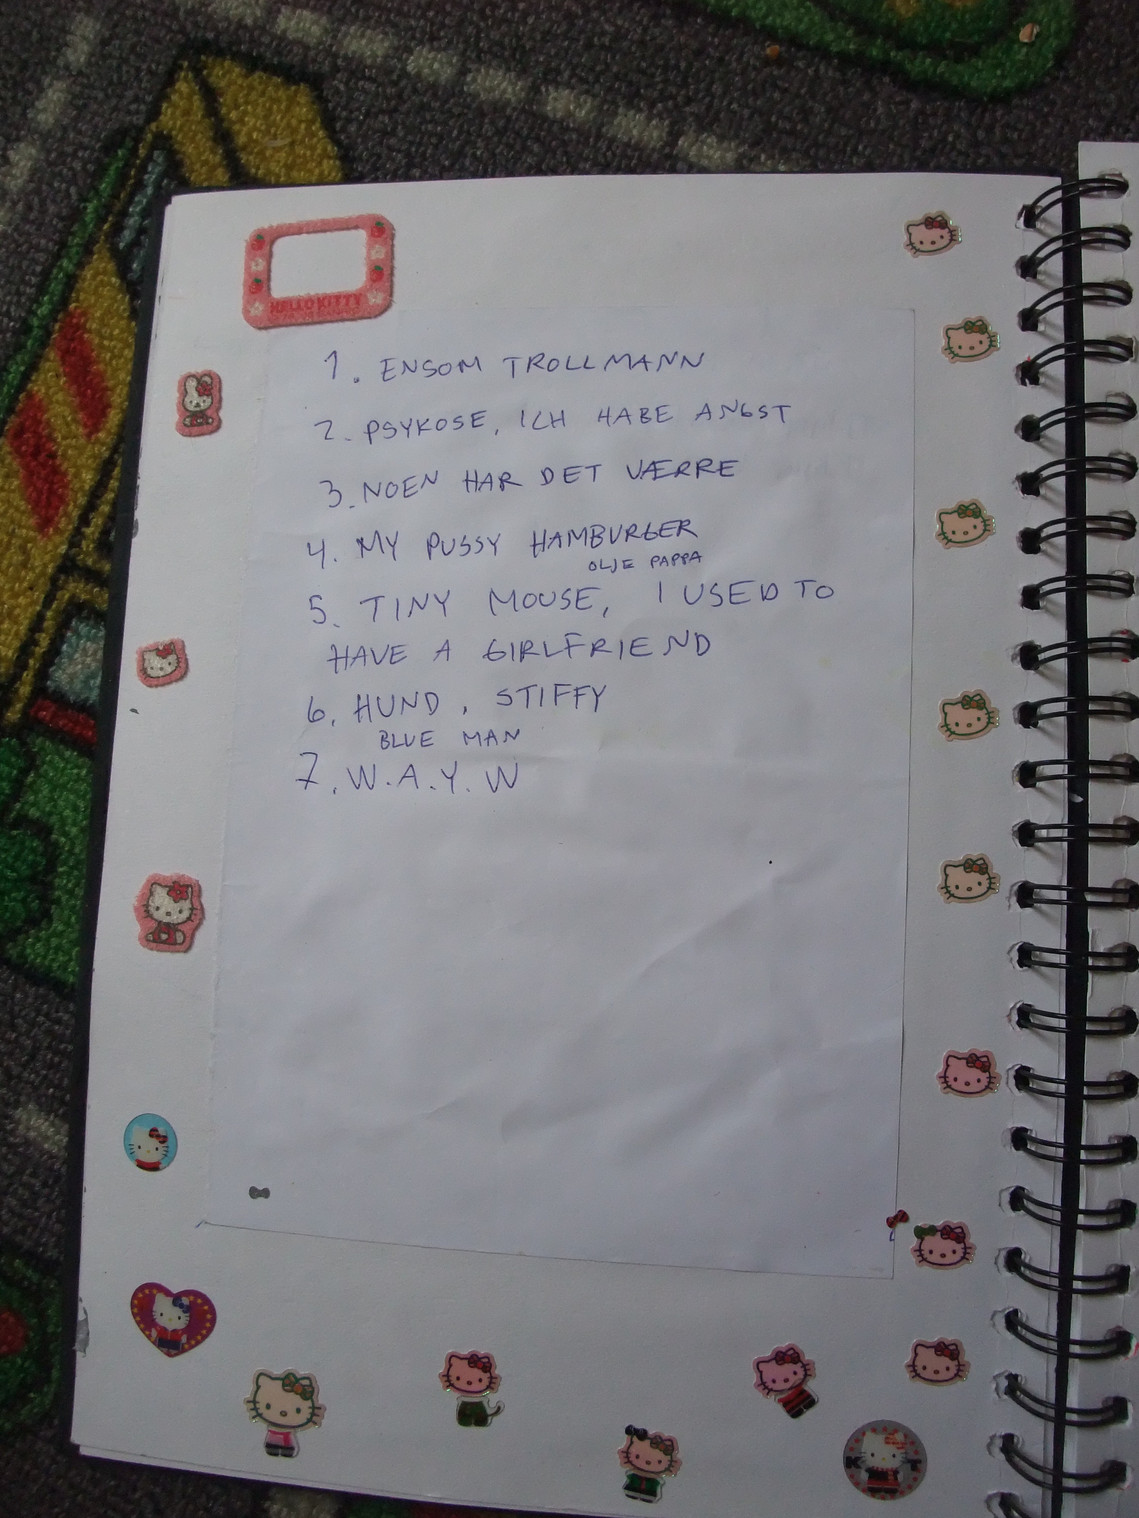 HELLO KITTY
1. ENSOM TROLLMANN
2. PSYKOSE, ICH HABE ANGST
3. NOEN HAR DET VÆRRE
4. MY PUSSY HAMBURGER
OLJE PAPPA
5. TINY MOUSE, I USED TO
HAVE A GIRLFRIEND
6. HUND, STIFFY
BLUE MAN
7. W.A.Y.W